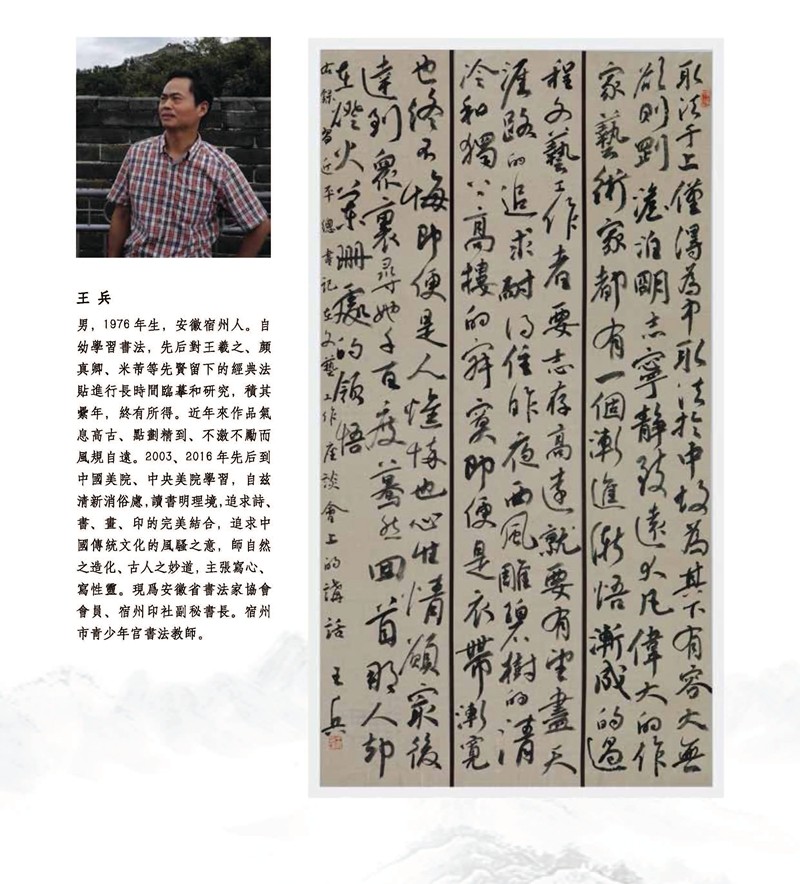 王 兵
男，1976 年生，安徽宿州人。自
幼學習書法，先后對王羲之、顏
真卿、米芾等先賢留下的經典法
貼進行長時間臨摹和研究，積其
纍年，終有所得。近年來作品氣
息高古、點劃精到、不激不勵而
風規自遠。2003、2016 年先后到
中國美院、中央美院學習，自兹
清新消俗慮，讀書明理境，追求詩、
書、畫、印的完美結合，追求中
國傳統文化的風騷之意，師自然
之造化、古人之妙道，主張寫心、
寫性靈。現爲安徽省書法家協會
會員、宿州印社副秘書長。宿州
市青少年官書法教師。
取法于上僅得為中取法於中故為其下有容大無
欲則剛澹泊明志寧靜致遠大凡偉大的作
家藝術家都有一個漸進漸悟漸成的過
程文藝工作者要志存高遠就要有望盡天
涯路的追求耐得住昨夜西風雕碧樹的清
冷和獨上高樓的寂寞即便是衣帶漸寬
也終不悔即便是人憔悴也心甘情願最後
達到眾裏尋她千百度驀然回首那人却
在燈火闌珊處的領悟
右錄習近平總書記在文藝工作座談會上的講話 王兵